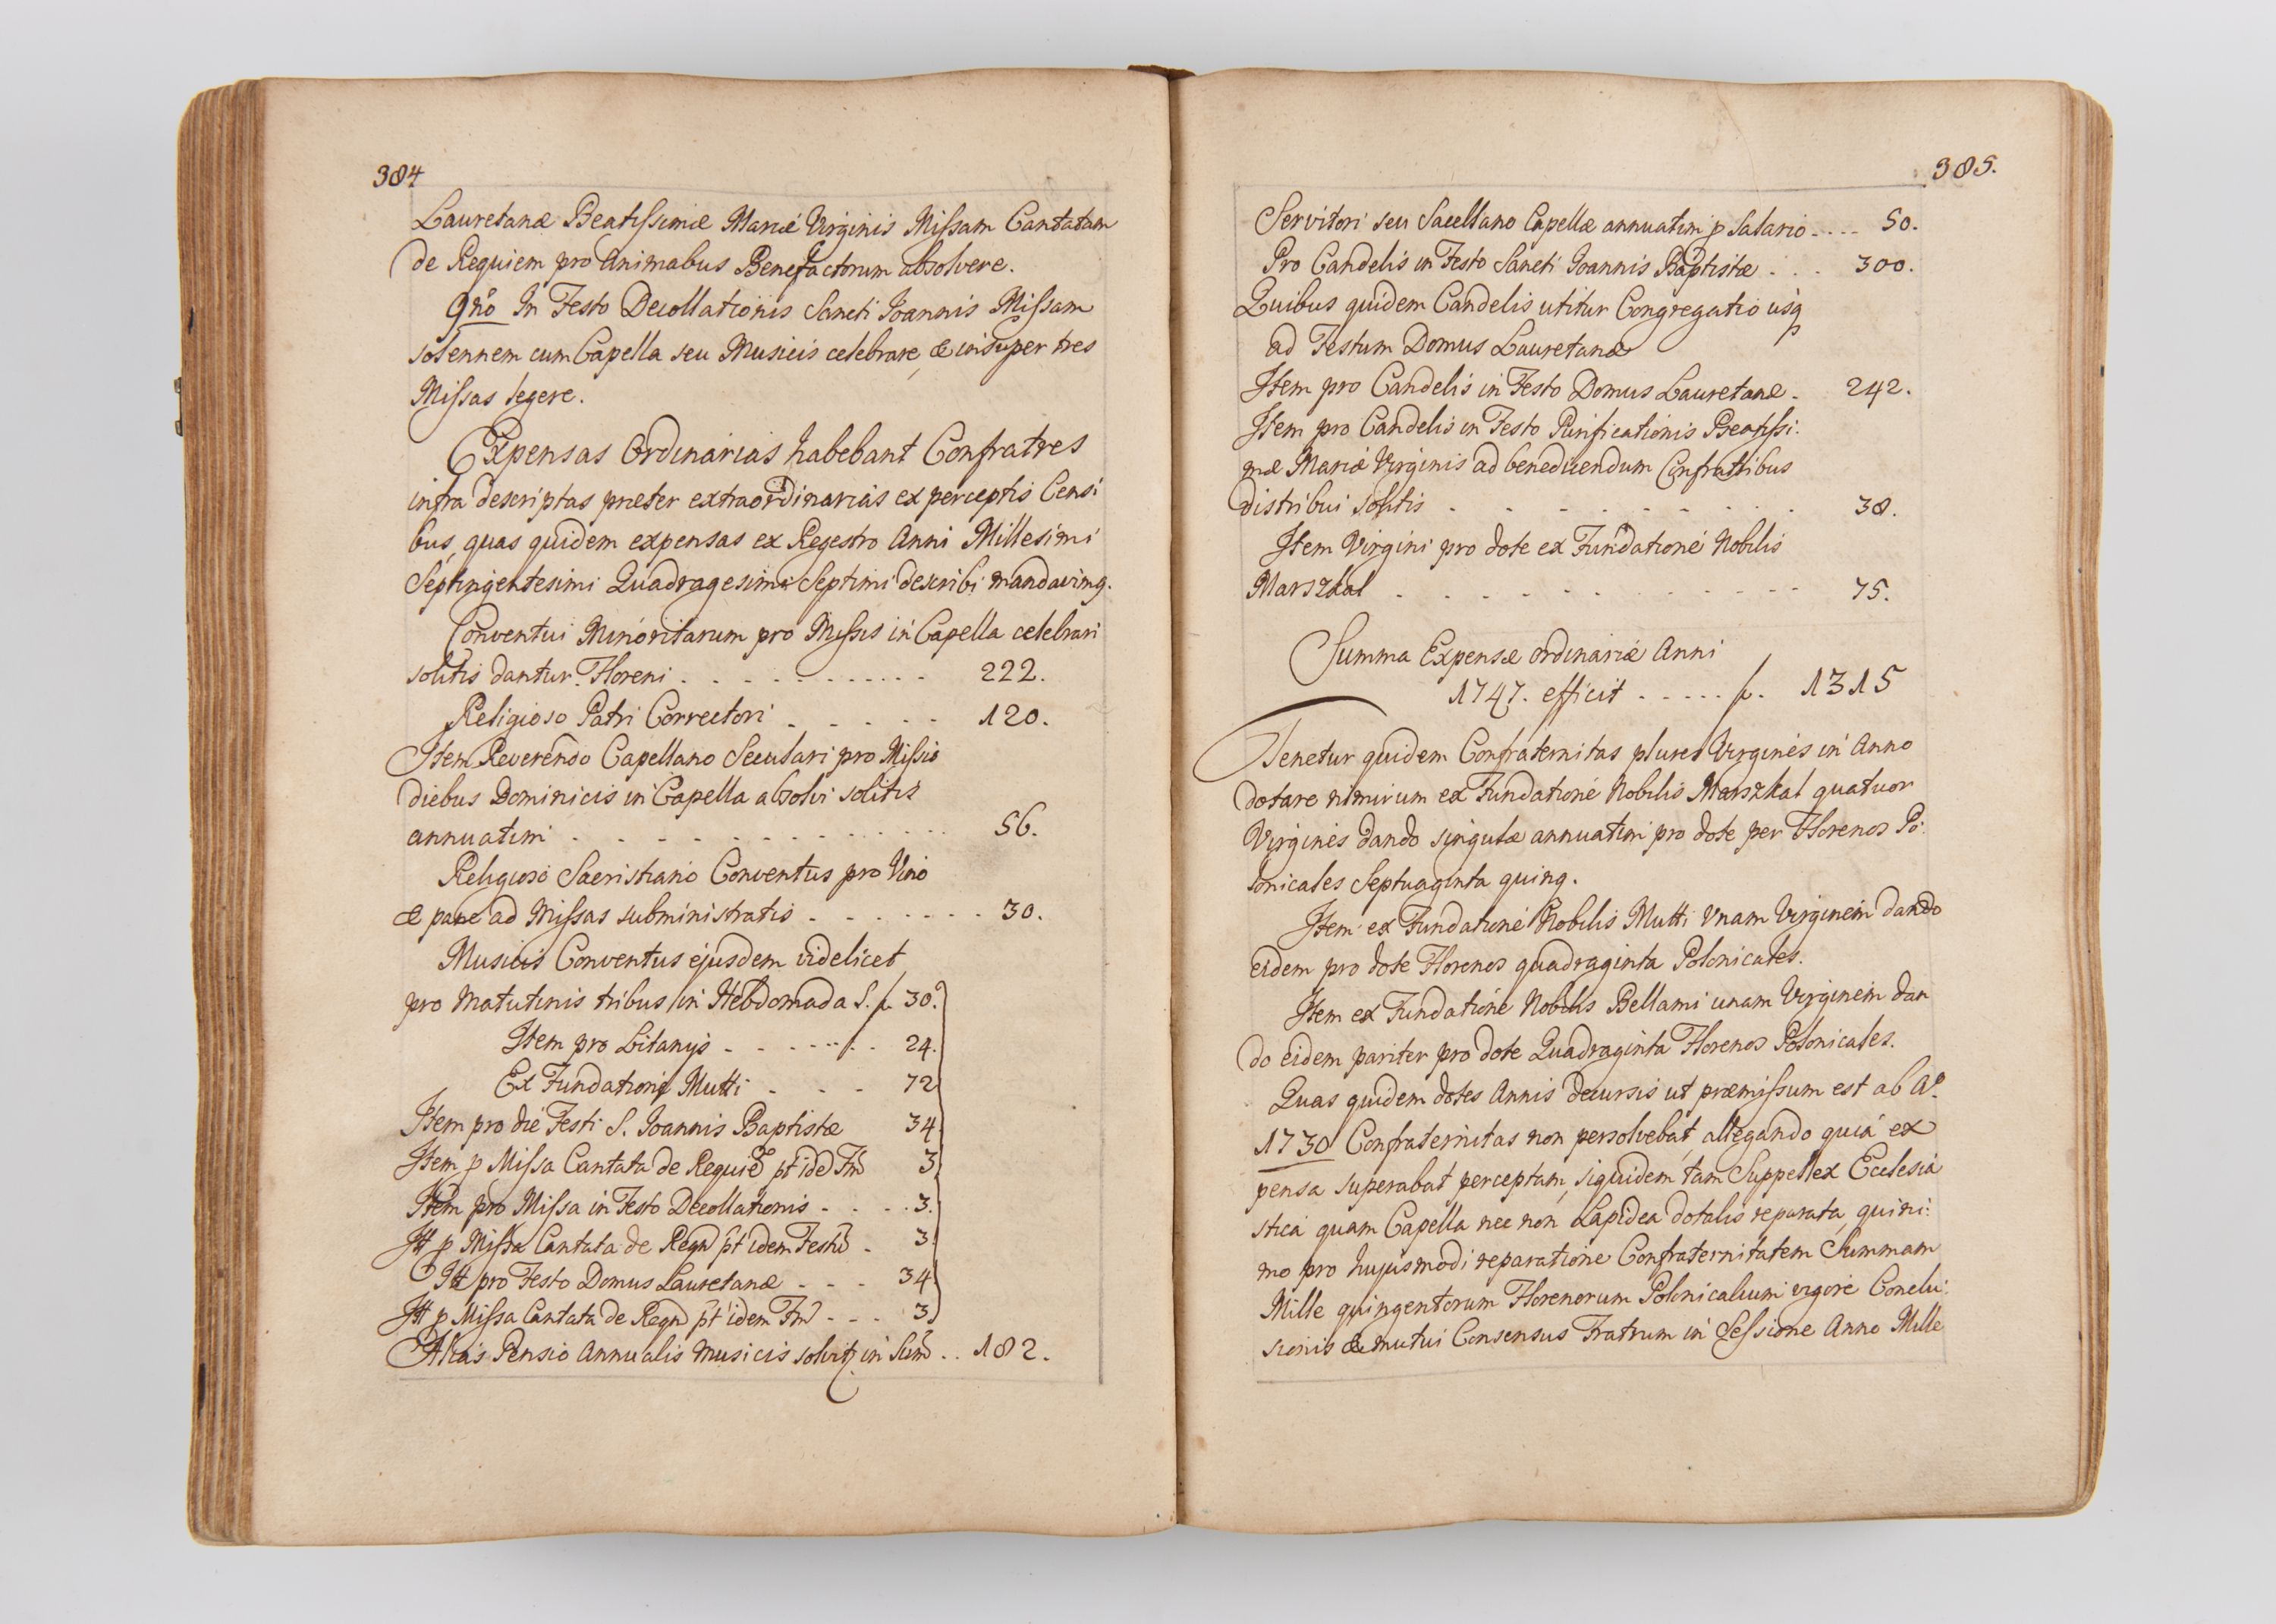 384
Lauretanæ Beatissimæ Mariæ Virginis Missam Cantatam
de Requiem pro Animabus Benefactorum absolvere.
9nò In Festo Decollationis Sancti Joannis Missam
solennem cum Capella seu Musicis celebrare, & insuper tres
Missas legere.
Expensas Ordinarias habebant Confratres
infra descriptas præter extraordinarias ex perceptis Censi
bus, quas quidem expensas ex Regestro Anni Millesimi
Septingentesimi Quadragesimi Septimi describi mandavimq.
Conventui Minoritarum pro Missis in Capella celebrari
solitis dantur Floreni . . . . . . . . . . . 222.
Religioso Patri Correctori . . . . . . 120.
Item Reverendo Capellano Seculari pro Missis
diebus Dominicis in Capella absolvi solitis
annuatim . . . . . . . . . . . . . . . 56.
Religioso Sacristiano Conventus pro Vino
& pane ad Missas subministratis . . . . . . . 30.
Musicis Conventus ejusdem videlicet,
pro Matutinis tribus in Hebdomada S. f. 30.
Item pro Litanijs . . . . . . . . 24.
Ex Fundatione Mutti . . . 72
Item pro die Festi S. Joannis Baptistæ 34
Item p Missa Cantata de Requiē pt idē Fm̄ 3
Item pro Missa in Festo Decollationis . . . . 3.
Itt p Missa Cantata de Reqm̄ pt idem Festū . 3
Itt pro Festo Domus Lauretanæ . . . 34.
Itt p Missa Cantata de Reqm̄ pt idem Fm̄ . . . 3
Alias Pensio Annualis Musicis solvitq in Sum̄ . . 182.
385.
Servitori seu Sacellano Capellæ annuatim p Salario . . . . 50.
Pro Candelis in Festo Sancti Joannis Baptistæ . . . 300.
Quibus quidem Candelis utitur Congregatio usq
ad Festum Domus Lauretanæ
Item pro Candelis in Festo Domus Lauretanæ . 242.
Item pro Candelis in Festo Purificationis Beatissi:
mæ Mariæ Virginis ad benedicendum Confratribus
distribui solitis . . . . . . . . . . 38.
Item Virgini pro dote ex Fundatione Nobilis
Marszkal . . . . . . . . . . . . . . 75.
Summa Expensæ ordinariæ Anni
1747. efficit . . . . . f. 1315
Tenetur quidem Confraternitas plures Virgines in Anno
dotare nimirum ex Fundatione Nobilis Marszkal quatuor
Virgines dando singulæ annuatim pro dote per Florenos Po:
lonicales Septuaginta quinq.
Item ex Fundatione Nobilis Mutti Vnam Virginem dando
eidem pro dote Florenos quadraginta Polonicales.
Item ex Fundatione Nobilis Bellami unam Virginem dan
do eidem pariter pro dote Quadraginta Florenos Polonicales.
Quas quidem dotes Annis decursis ut præmissum est ab Aº
1730 Confraternitas non persolvebat, allegando quia ex
pensa superabat perceptam, siquidem tam Suppellex Ecclesia
stica quam Capella nec non Lapidea dotalis reparata, quini:
mo pro hujusmodi reparatione Confraternitatem Summam
Mille quingentorum Florenorum Polonicalium vigore Conclu:
sionis & mutui Consensus Fratrum in Sessione Anno Mille